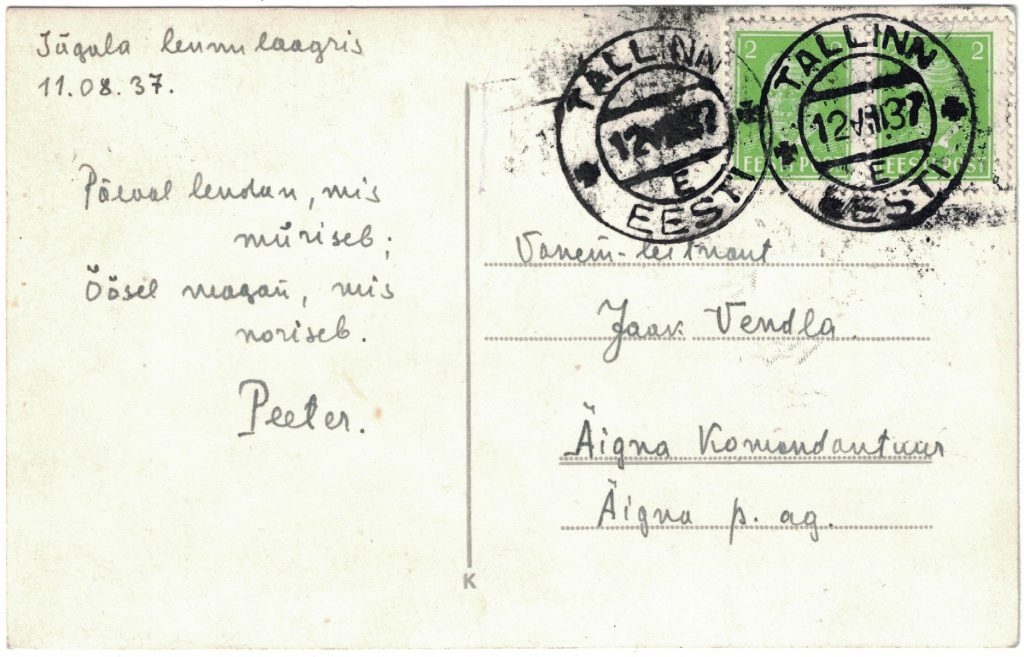 Jägala lennu laagris
11.08.37.
Päeval lendan, mis
müriseb;
Öösel magan, mis
noriseb.
Peeter.
TALLINN
12 VIII 37
E
EESTI
TALLINN
12 VIII 37
E
EESTI
2
2
EESTI POST
EESTI POST
Vanem-leitnant
Jaak Vendla.
Äigna Komendantuur
Äigna p. ag.
K